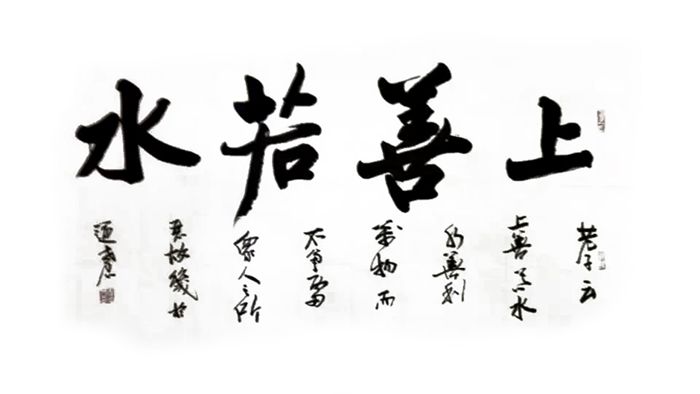 上善若水
老子云
上善若水
水善利
萬物而
不爭處
衆人之所
惡故幾於
道